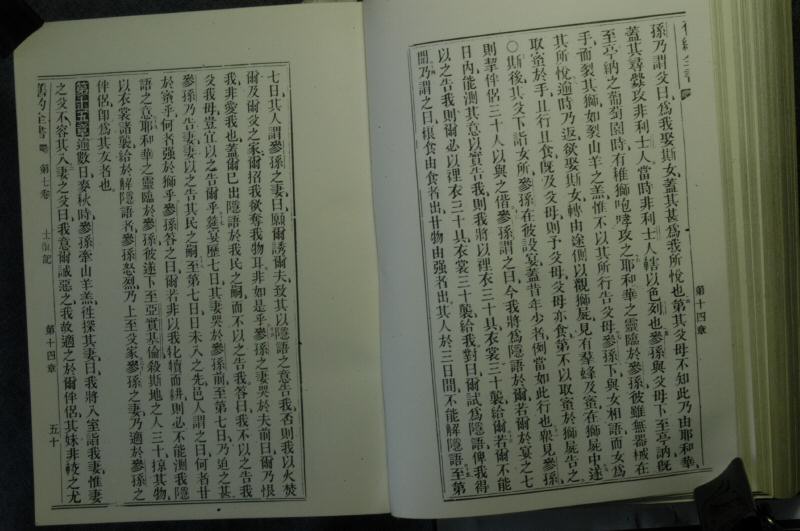 第十四章
孫乃謂父曰爲我娶斯女蓋其甚爲我所悅也第其父母不知此乃由耶和華
蓋其尋釁攻非利士人當時非利士人轄以色列也參孫與父母下至亭訥旣
至亭訥之葡萄園時有稚獅咆哮攻之耶和華之靈臨於參孫彼雖無器械在
手而裂其獅如裂山羊之羔惟不以其所行告父母參孫下與女相語而女爲
其所悅逾時乃返欲娶斯女轉由途側以觀獅屍見有羣蜂及蜜在獅屍中遂
取蜜於手且行且食旣及父母則予父母父母亦食第不以取蜜於獅屍告之
〇斯後其父下詣女所參孫在彼設宴蓋昔年少者例當如此行也衆見參孫
則挈伴侶三十人以與之偕參孫謂之曰今我將爲隱語於爾若爾於宴之七
日內能測其意以實告我則我將以裡衣三十具衣裳三十襲給爾若爾不能
以之告我則爾必以裡衣三十具衣裳三十襲給我對曰爾試爲隱語俾我得
聞乃謂之曰糗食由食者出甘物由强者出其人於三日間不能解隱語至第
七日其人謂參孫之妻曰願誘爾夫致其以隱語之意告我否則我以火焚
爾及爾父之家爾招我欲奪我物耳非如是乎參孫之妻哭於夫前曰爾乃恨
我非愛我也蓋爾已出隱語於我民之嗣而不以之告我答曰我不以之告我
父我母豈宜以之告爾乎筵宴歷七日其妻哭於參孫前至第七日乃迫之甚
參孫乃告妻妻以之告其民之嗣至第七日日未入之先邑人謂之曰何者甘
於蜜乎何者强於獅乎參孫答之曰爾若非以我牝犢而耕則必不能測我隱
語之意耶和華之靈臨於參孫彼遂下至亞實基倫殺斯地之人三十掠其物
以衣裳諸襲給於解隱語者參孫怒烈乃上至父家參孫之妻乃適於參孫之
伴侶卽爲其友者也
第十五章逾數日麥秋時參孫牽山羊羔往探其妻曰我將入室詣我妻惟妻
之父不容其入妻之父曰我意爾誠惡之我故適之於爾伴侶其妹非較之尤
舊約全書 第七卷 士師記 第十四章 五十